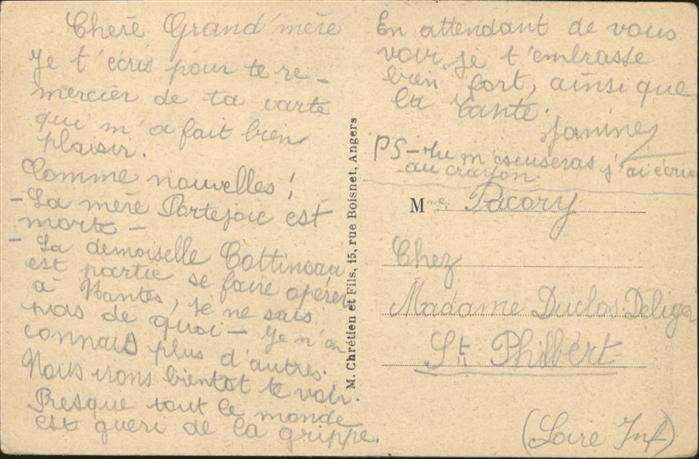 Cherè Grand'mère
Je t'écris pour te re-
mercier de ta carte
qui m'a fait bien
plaisir.
Comme nouvelles!
- La mère Portejoie est
morte -
- La demoiselle Cottineau
est partie se faire opérer
à Nantes, je ne sais
pas de quoi - Je n'en
connais plus d'autres.
Nous irons bientot te voir.
Presque tout le monde
est gueri de la grippe.
En attendant de vous
voir je t'embrasse
bien fort, ainsi que
la tante.
Janine
PS - tu m'escuseras j'ai écrit
au crayon.
M. Chrétien et Fils, 15, rue Boisnet, Angers
Mme Pacory
Chez
Madame Duclos Deliga
St Philbert
(Loire Inf)